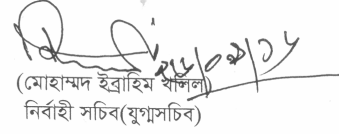 ২৮/০৯/১৫
(মোহাম্মদ ইব্রাহিম খলিল)
নির্বাহী সচিব(যুগ্মসচিব)